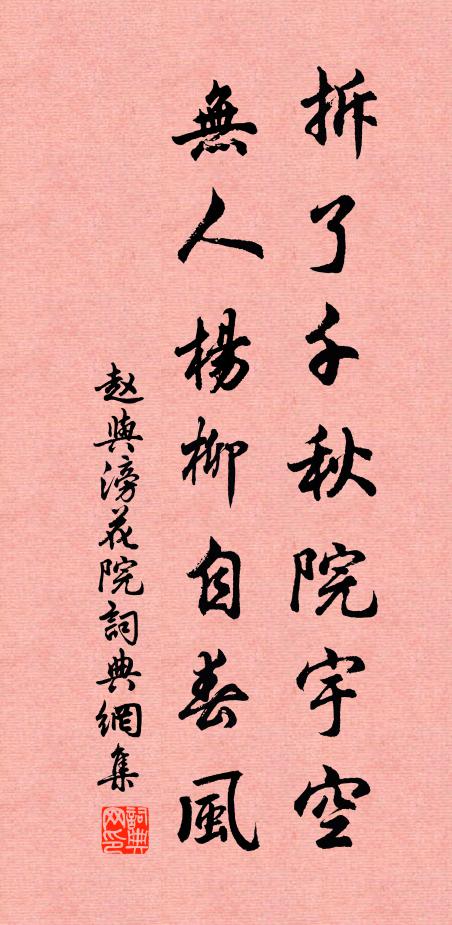 拆了千秋院宇空
無人楊柳自春風
赵與滂花院詞典網集
詞典網印